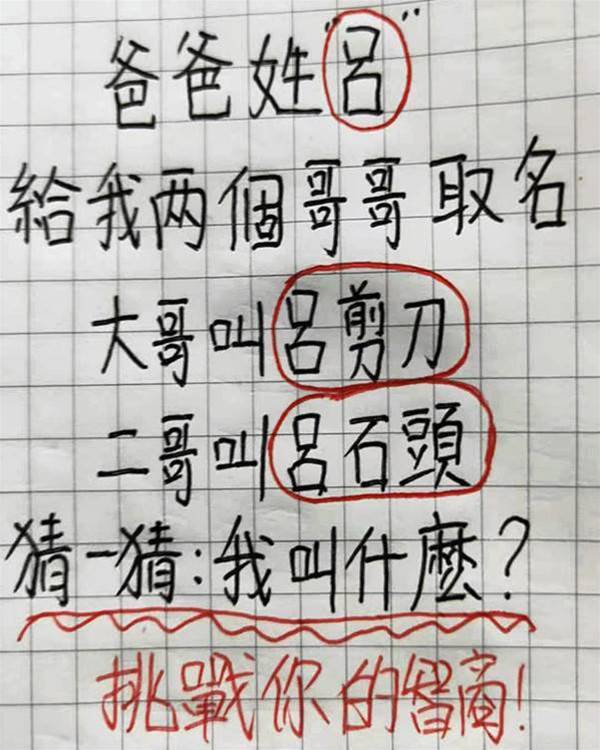 爸爸姓"呂"
給我两個哥哥取名
大哥叫呂剪刀
二哥叫呂石頭
猜一猜:我叫什麼?
挑戰你的智商!